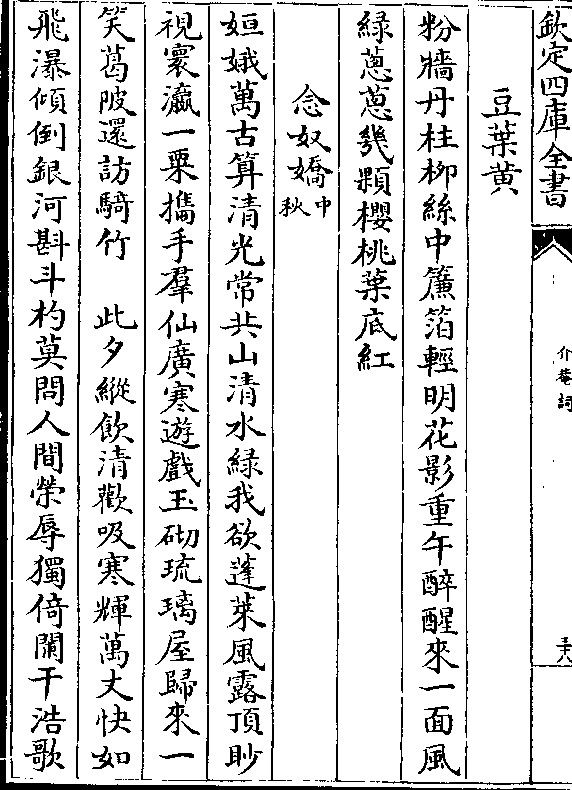 欽定四庫全書
介菴詞
三十八
豆葉黄
粉牆丹柱柳絲中簾箔輕明花影重午醉醒來一面風
緑蔥蔥幾顆櫻桃葉底紅
念奴嬌中秋
姮娥萬古算清光常共山清水緑我欲蓬萊風露頂眇
視寰瀛一粟攜手羣仙廣寒遊戲玉砌琉璃屋歸來一
笑葛陂還訪騎竹　此夕縱飲清歡吸寒輝萬丈快如
飛瀑傾倒銀河斟斗杓莫問人間榮辱獨倚闌干浩歌